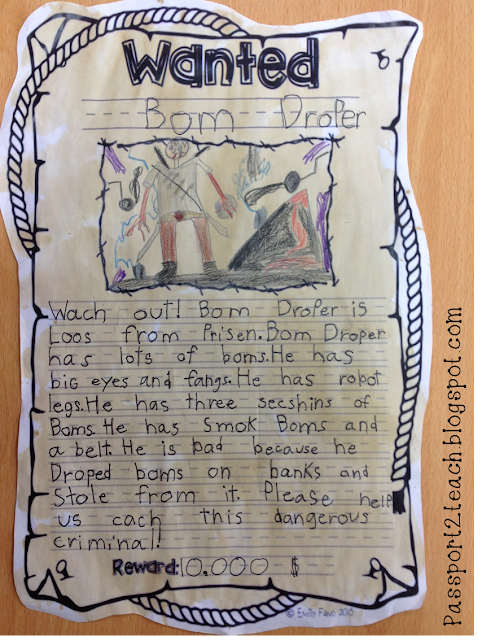 Wanted
Bom Droper
Wach out! Bom Droper is
Loos from Prisen. Bom Droper
has lots of boms. He has
big eyes and fangs. He has robot
legs. He has three secshins of
Boms. He has Smok Boms and
a belt. He is bad because he
Droped boms on banks and
Stole from it. Please help
us cach this dangerous
criminal!
Reward: 10.000 $
© Emily Favo 2013
Passport2teach.blogspot.com